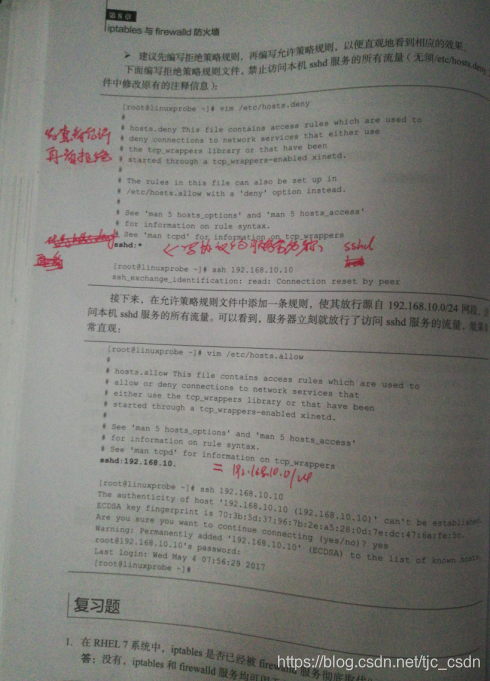 第8章
iptables 与 firewalld 防火墙
➢ 建议先编写拒绝策略规则，再编写允许策略规则，以便直观地看到相应的效果。
下面编写拒绝策略规则文件，禁止访问本机 sshd 服务的所有流量（无须/etc/hosts.deny
件中修改原有的注释信息）：
[root@linuxprobe ~]# vim /etc/hosts.deny
#
# hosts.deny This file contains access rules which are used to
# deny connections to network services that either use
# the tcp_wrappers library or that have been
# started through a tcp_wrappers-enabled xinetd.
#
# The rules in this file can also be set up in
# /etc/hosts.allow with a 'deny' option instead.
#
# See 'man 5 hosts_options' and 'man 5 hosts_access'
# for information on rule syntax.
# See 'man tcpd' for information on tcp_wrappers
sshd:*
sshd
[root@linuxprobe ~]# ssh 192.168.10.10
ssh_exchange_identification: read: Connection reset by peer
接下来，在允许策略规则文件中添加一条规则，使其放行源自 192.168.10.0/24 网段，
问本机 sshd 服务的所有流量。可以看到，服务器立刻就放行了访问 sshd 服务的流量，
常直观：
[root@linuxprobe ~]# vim /etc/hosts.allow
#
# hosts.allow This file contains access rules which are used to
# allow or deny connections to network services that
# either use the tcp_wrappers library or that have been
# started through a tcp_wrappers-enabled xinetd.
#
# See 'man 5 hosts_options' and 'man 5 hosts_access'
# for information on rule syntax.
# See 'man tcpd' for information on tcp_wrappers
sshd:192.168.10.
= 192.168.10.0/24
[root@linuxprobe ~]# ssh 192.168.10.10
The authenticity of host '192.168.10.10 (192.168.10.10)' can't be established.
ECDSA key fingerprint is 70:3b:5d:37:96:7b:2e:a5:28:0d:7e:dc:47:6a:fe:5c.
Are you sure you want to continue connecting (yes/no)? yes
Warning: Permanently added '192.168.10.10' (ECDSA) to the list of known hosts.
root@192.168.10.10's password:
Last login: Wed May 4 07:56:29 2017
[root@linuxprobe ~]#
复习题
1. 在 RHEL 7 系统中，iptables 是否已经被 firewalld 服务彻底取代
答：没有，iptables 和 firewalld 服务均可用
https://blog.csdn.net/tjc_csdn